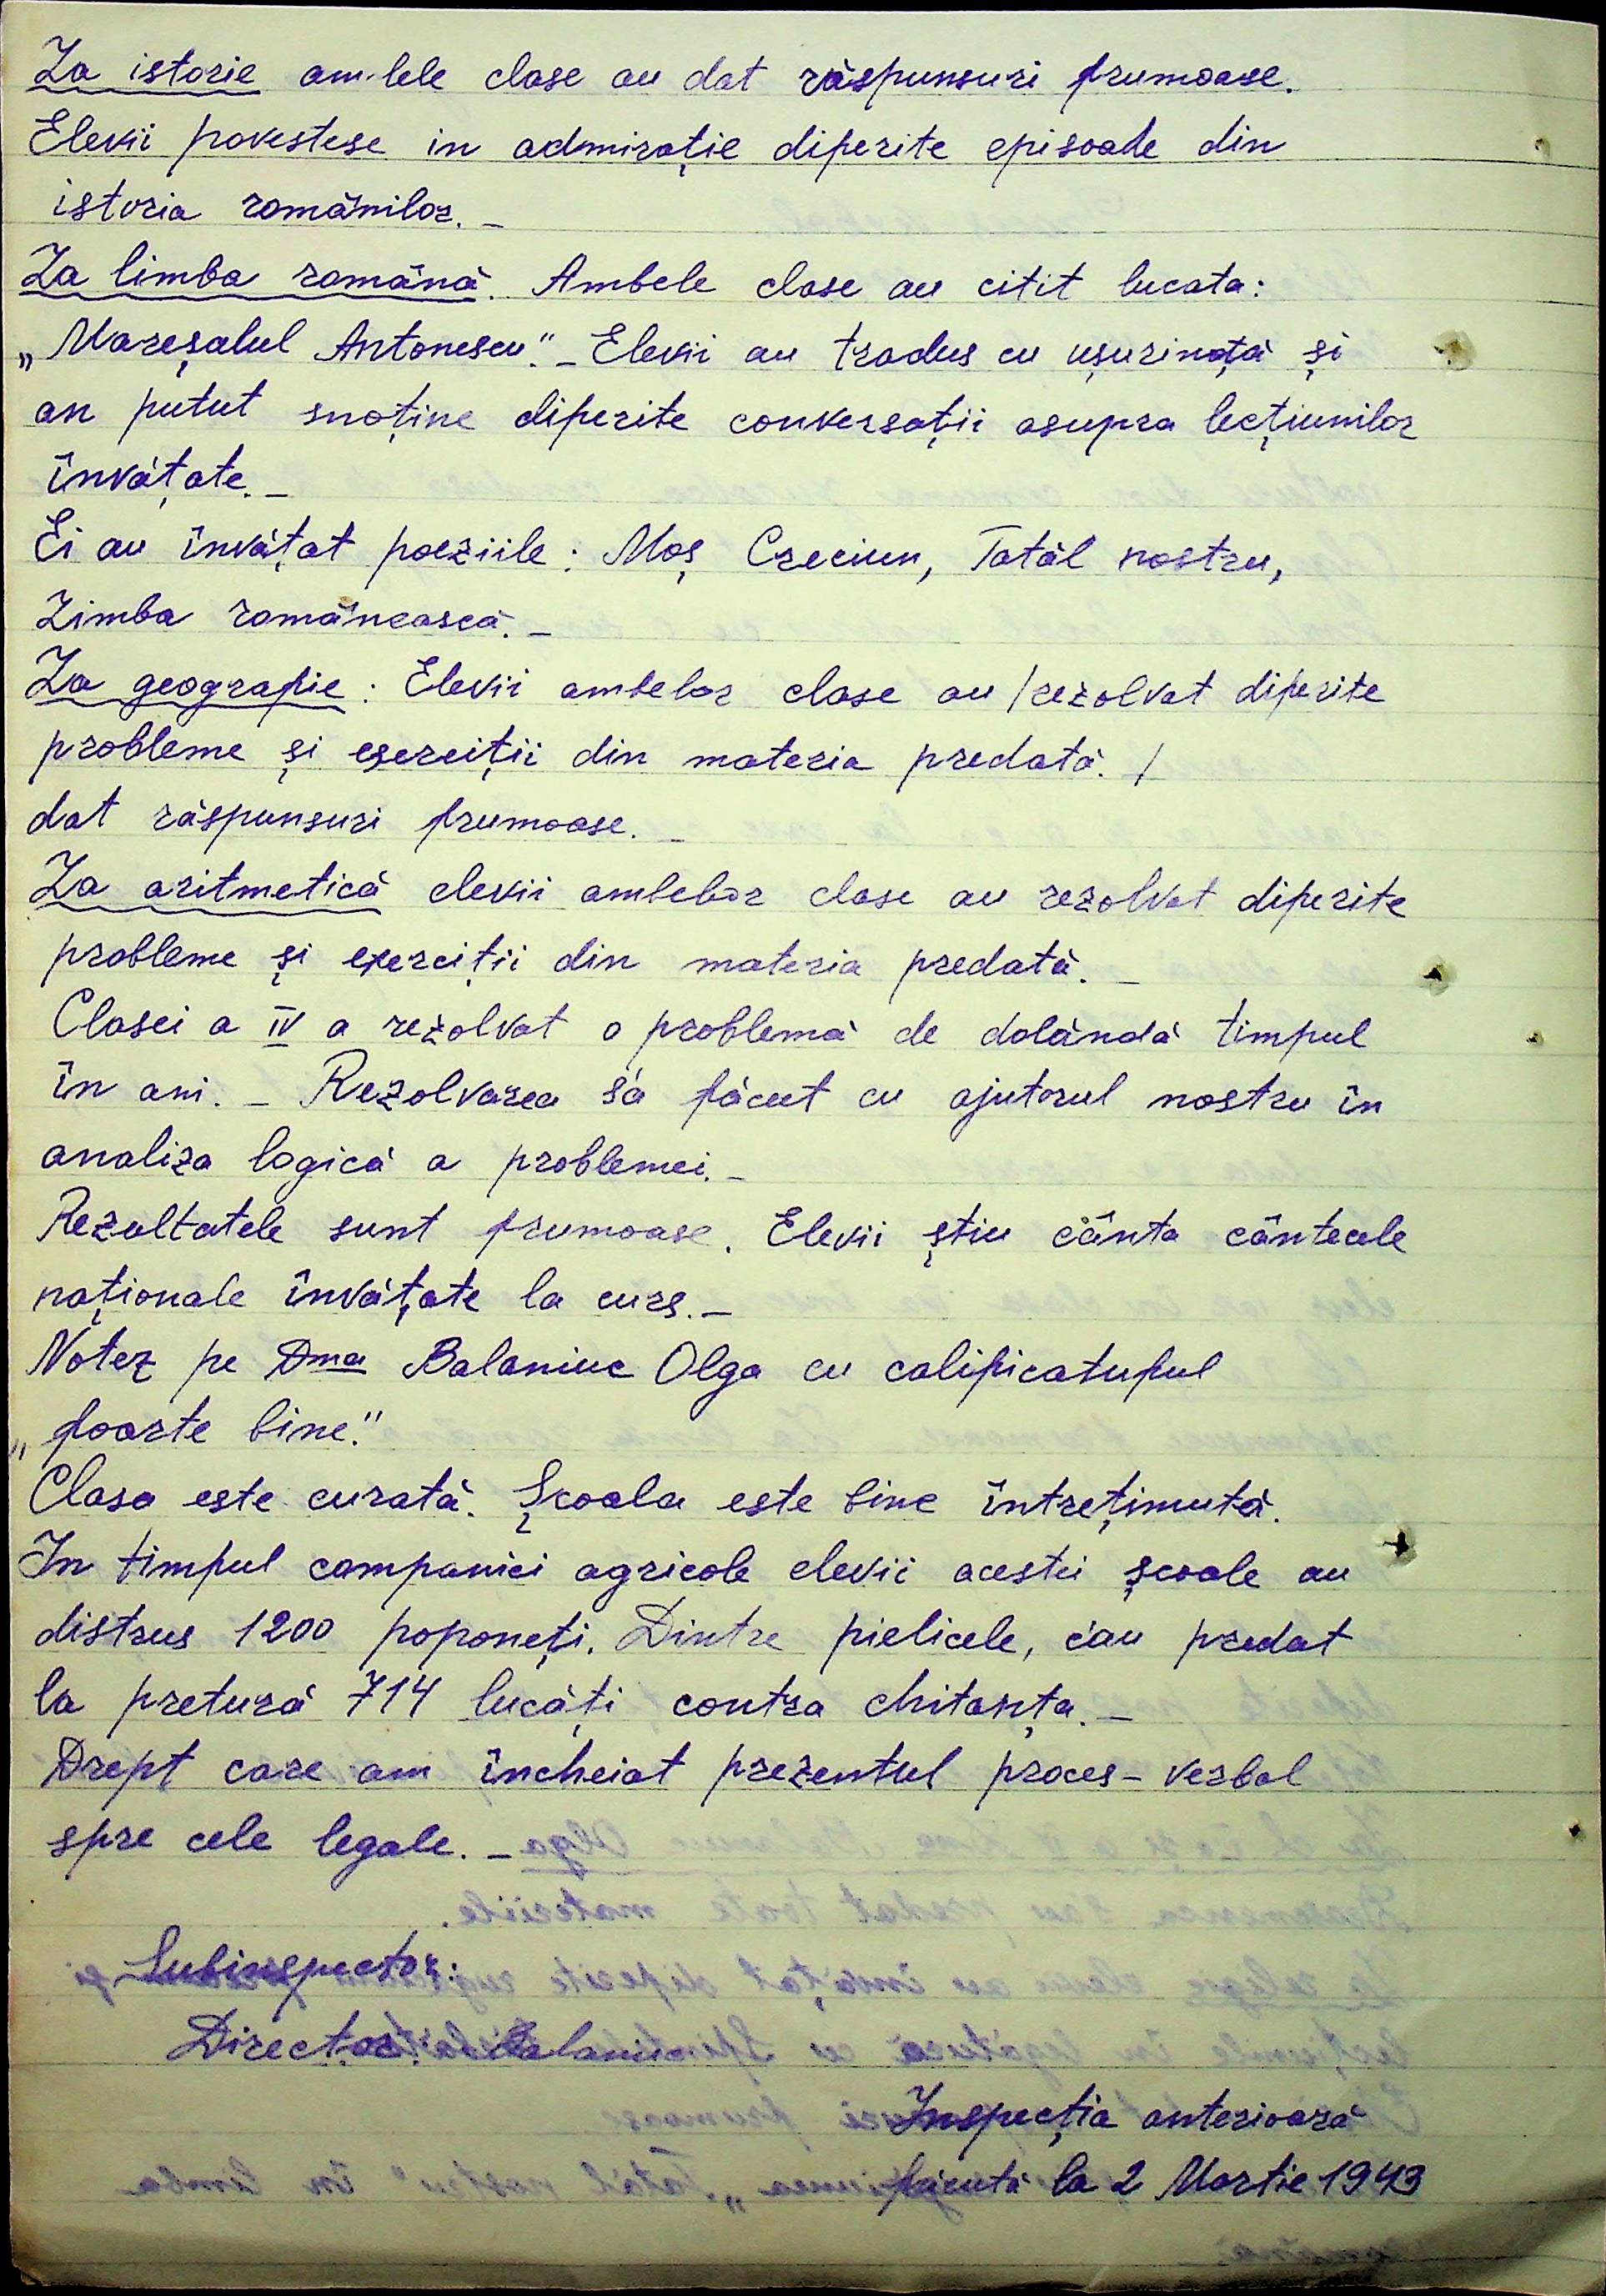 La istorie ambele clase au dat răspunsuri frumoase.
Elevii povestesc in admirație diferite episoade din
istoria românilor. –
La limba română. Ambele clase au citit bucata:
„Mareșalul Antonescu". – Elevii au tradus cu ușurință și
au putut snoține diferite conversații asupra lecțiunilor
învățate. –
Ei au învățat poeziile: Moș Creciun, Tatăl nostru,
Limba românească. –
La geografie: Elevii ambelor clase au /rezolvat diferite
probleme și eserciții din materia predată. /
dat răspunsuri frumoase. –
La aritmetică elevii ambelor clase au rezolvat diferite
probleme și exerciții din materia predată. –
Clasei a IV a rezolvat o problemă de dolândă timpul
în ani. – Rezolvarea s'a făcut cu ajutorul nostru în
analiza logică a problemei. –
Rezultatele sunt frumoase. Elevii știu cânta cântecele
naționale învățate la curs. –
Notez pe Dma Balaniuc Olga cu calificatuful
„foarte bine".
Clasa este curată. Școala este bine întrețimută.
In timpul companiei agricole elevii acestei școale au
distrus 1200 poponeți. Dintre pielicele, c'au predat
la pretură 714 bucăți contra chitanța. –
Drept care am încheiat prezentul proces-verbal
spre cele legale. –
Subinspector:
Director: Balaniuc
Inspecția anterioară
făcută la 2 Martie 1943